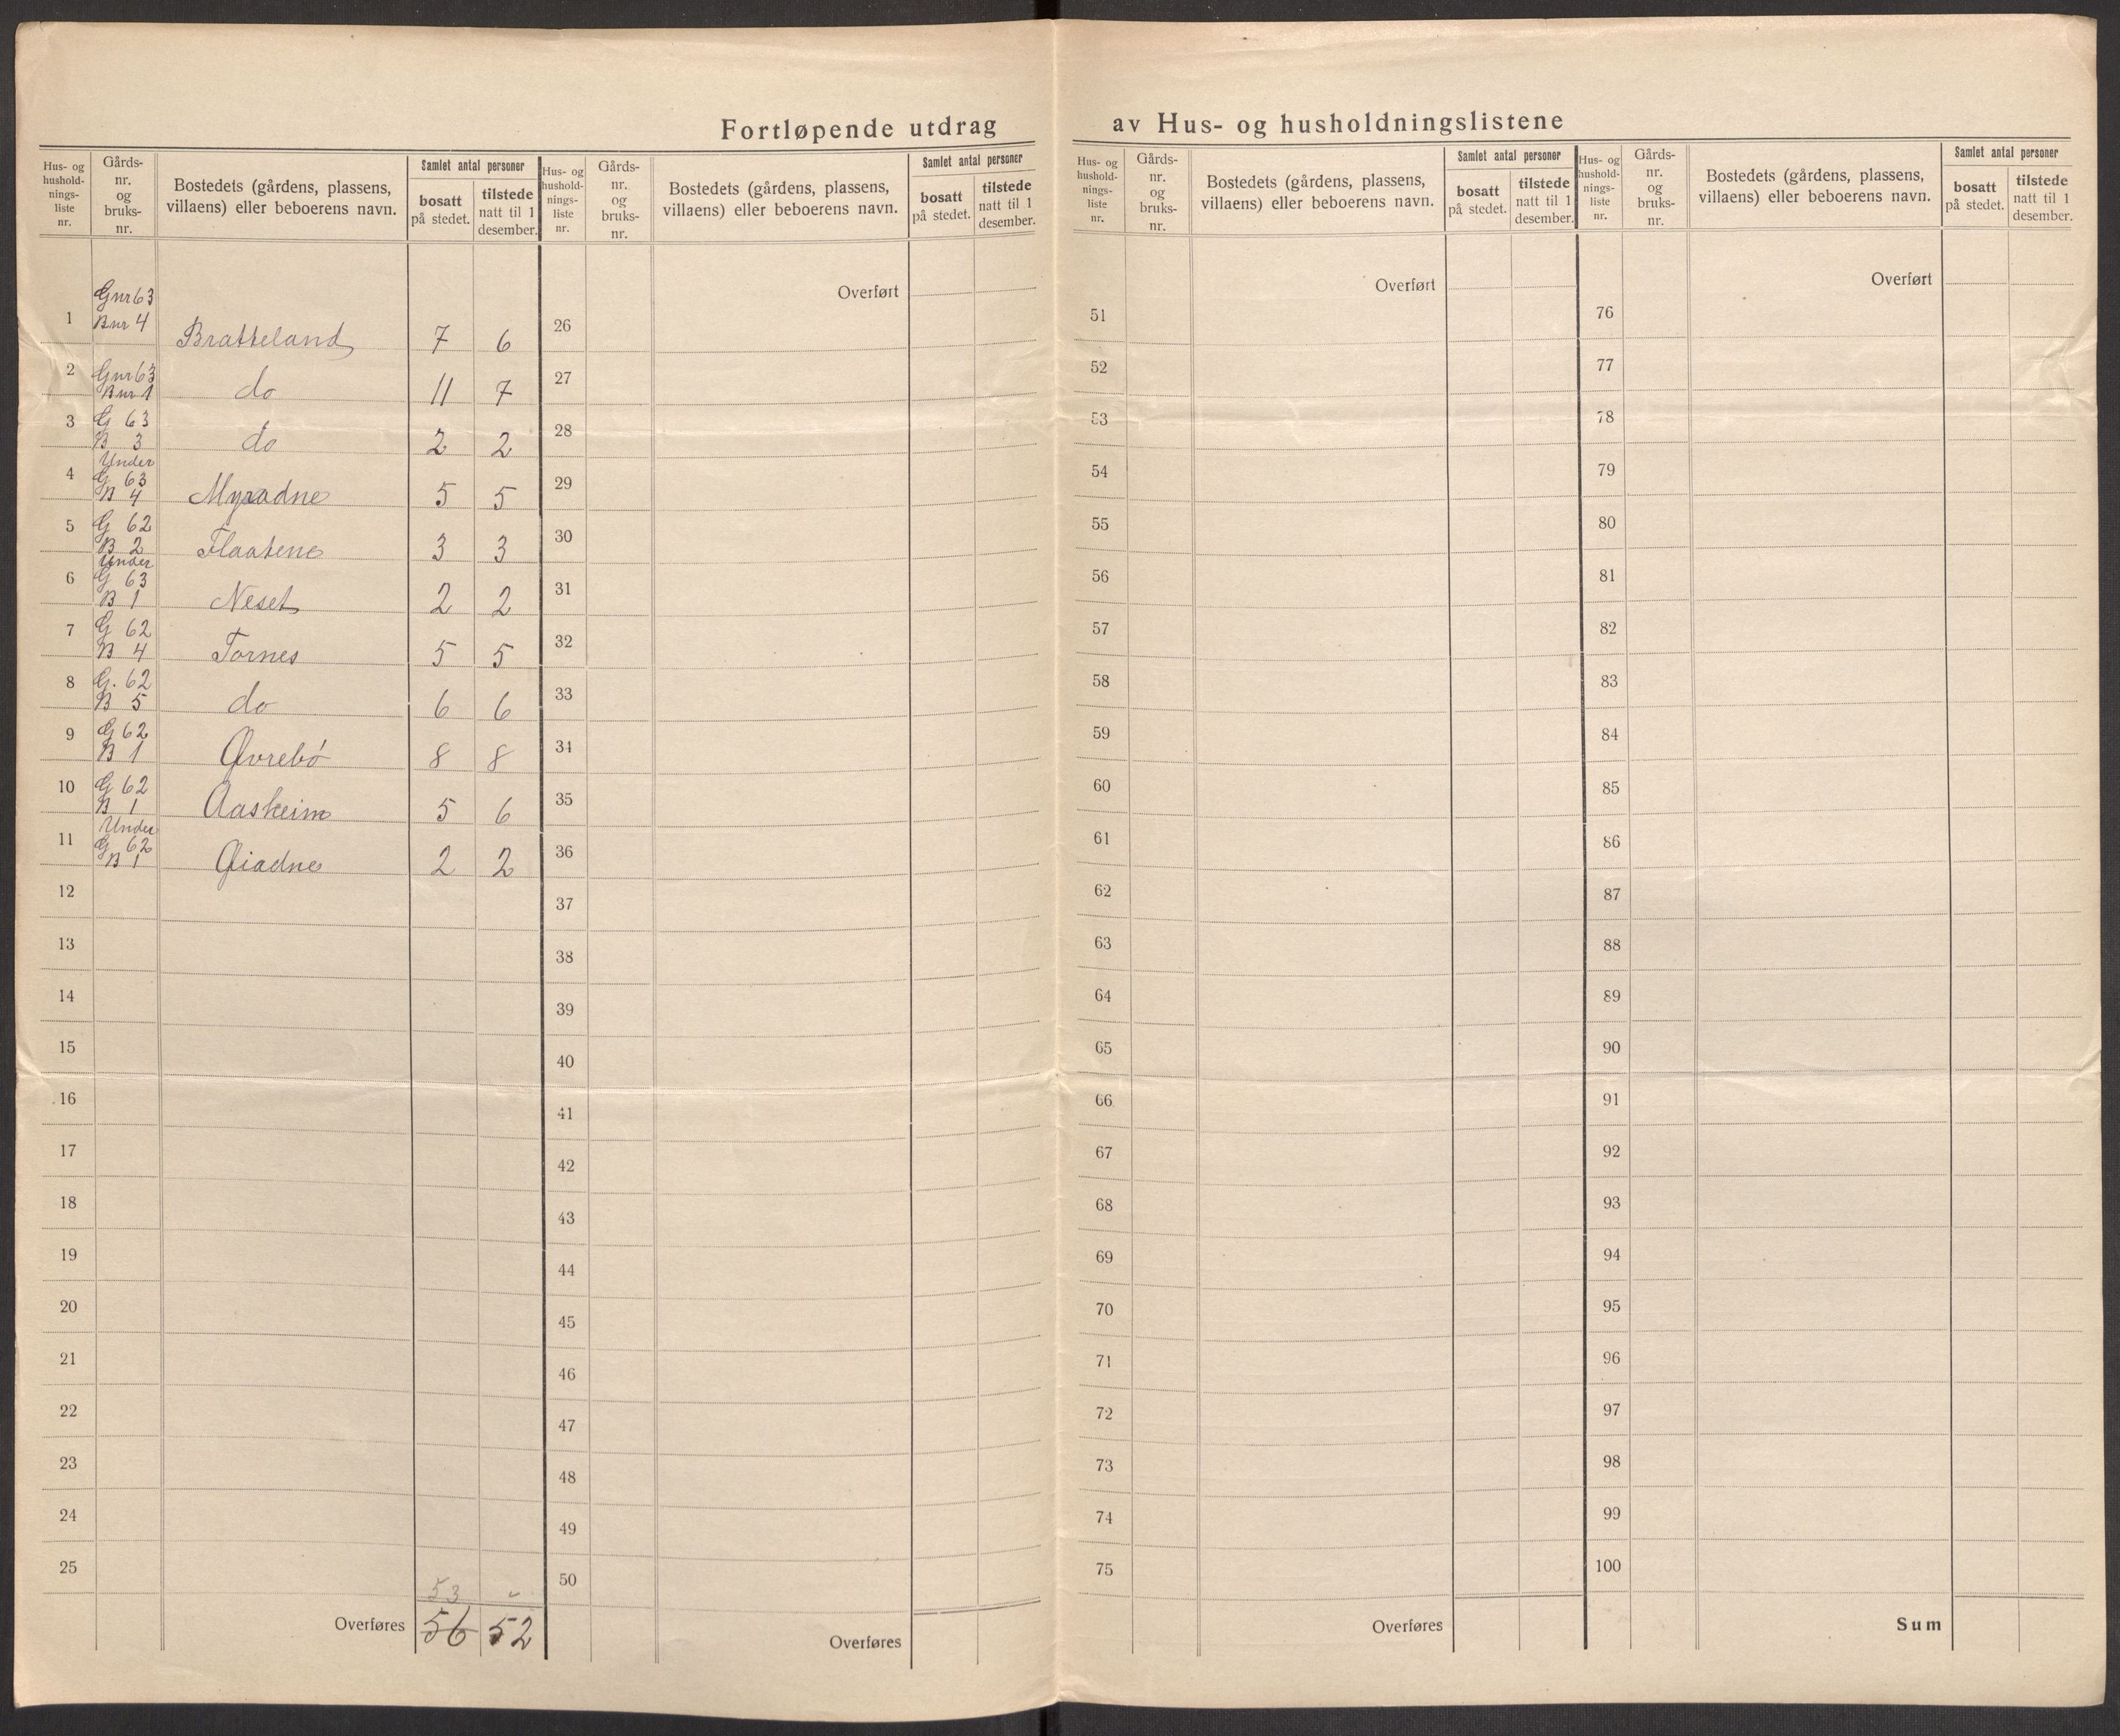 Fortløpende utdrag av Hus- og husholdningslistene
Hus- og hushold-nings-liste nr. Gårds-nr. og bruks-nr. Bostedets (gårdens, plassens, villaens) eller beboerens navn. Samlet antal personer bosatt på stedet. tilstede natt til 1 desember.
1 Gnr 63 Bnr 4 Bratteland 7 6
2 Gnr 63 Bnr 1 do 11 7
3 G 63 B 3 do 2 2
4 Under G 63 B 4 Myradne 5 5
5 G 62 B 2 Flaatene 3 3
6 Under G 63 B 1 Neset 2 2
7 G 62 B 4 Tornes 5 5
8 G. 62 B 5 do 6 6
9 G 62 B 1 Øvrebø 8 8
10 G 62 B 1 Aasheim 5 6
11 Under G 62 B 1 Øiadne 2 2
12
13
14
15
16
17
18
19
20
21
22
23
24
25
53
Overføres 56 52
Hus- og hushold-nings-liste nr. Gårds-nr. og bruks-nr. Bostedets (gårdens, plassens, villaens) eller beboerens navn. Samlet antal personer bosatt på stedet. tilstede natt til 1 desember.
Overført
26
27
28
29
30
31
32
33
34
35
36
37
38
39
40
41
42
43
44
45
46
47
48
49
50
Overføres
Hus- og hushold-nings-liste nr. Gårds-nr. og bruks-nr. Bostedets (gårdens, plassens, villaens) eller beboerens navn. Samlet antal personer bosatt på stedet. tilstede natt til 1 desember.
Overført
51
52
53
54
55
56
57
58
59
60
61
62
63
64
65
66
67
68
69
70
71
72
73
74
75
Overføres
Hus- og hushold-nings-liste nr. Gårds-nr. og bruks-nr. Bostedets (gårdens, plassens, villaens) eller beboerens navn. Samlet antal personer bosatt på stedet. tilstede natt til 1 desember.
Overført
76
77
78
79
80
81
82
83
84
85
86
87
88
89
90
91
92
93
94
95
96
97
98
99
100
Sum